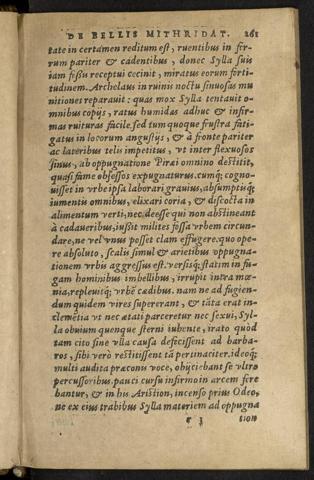 DE BELLIS MITHRIDAT. 261
tate in certamen reditum est, ruentibus in fer-
rum pariter & cadentibus, donec Sylla suis
iam fessis receptui cecinit, miratus eorum forti-
tudinem. Archelaus in ruinis noctu sinuosas mu
nitiones reparauit: quas mox Sylla tentauit o-
mnibus copijs, ratus humidas adhuc & infir-
mas ruituras facile. sed tum quoque frustra fati-
gatus in locorum angustijs, & à fronte pariter
ac lateribus telis impetitus, vt inter flexuosos
sinus, ab oppugnatione Piræi omnino destitit,
quasi fame obsessos expugnaturus. cumq; cogno-
uisset in vrbe ipsa laborari grauius, absumptisq;
iumentis omnibus, elixari coria, & discocta in
alimentum verti, nec deesse qui non abstineant
à cadaueribus, iussit milites fossa vrbem circun-
dare, ne vel vnus posset clam effugere. quo ope-
re absoluto, scalis simul & arietibus oppugna-
tionem vrbis aggressus est. versisq; statim in fu-
gam hominibus imbellibus, irrupit intra mœ-
nia, repleuitq; vrbē cædibus. nam ne ad fugien-
dum quidem vires supererant, & tāta erat in-
clemētia vt nec ætati parceretur nec sexui, Syl-
la obuium quenque sterni iubente, irato quòd
tam cito sine vlla causa defecissent ad barba-
ros, sibi verò restitissent tā pertinaciter. ideoq;
multi audita præconis voce, obijciebant se vltro
percussoribus. pauci cursu infirmo in arcem fere
bantur, & in his Aristion, incenso prius Odeo,
ne ex eius trabibus Sylla materiem ad oppugna
tion